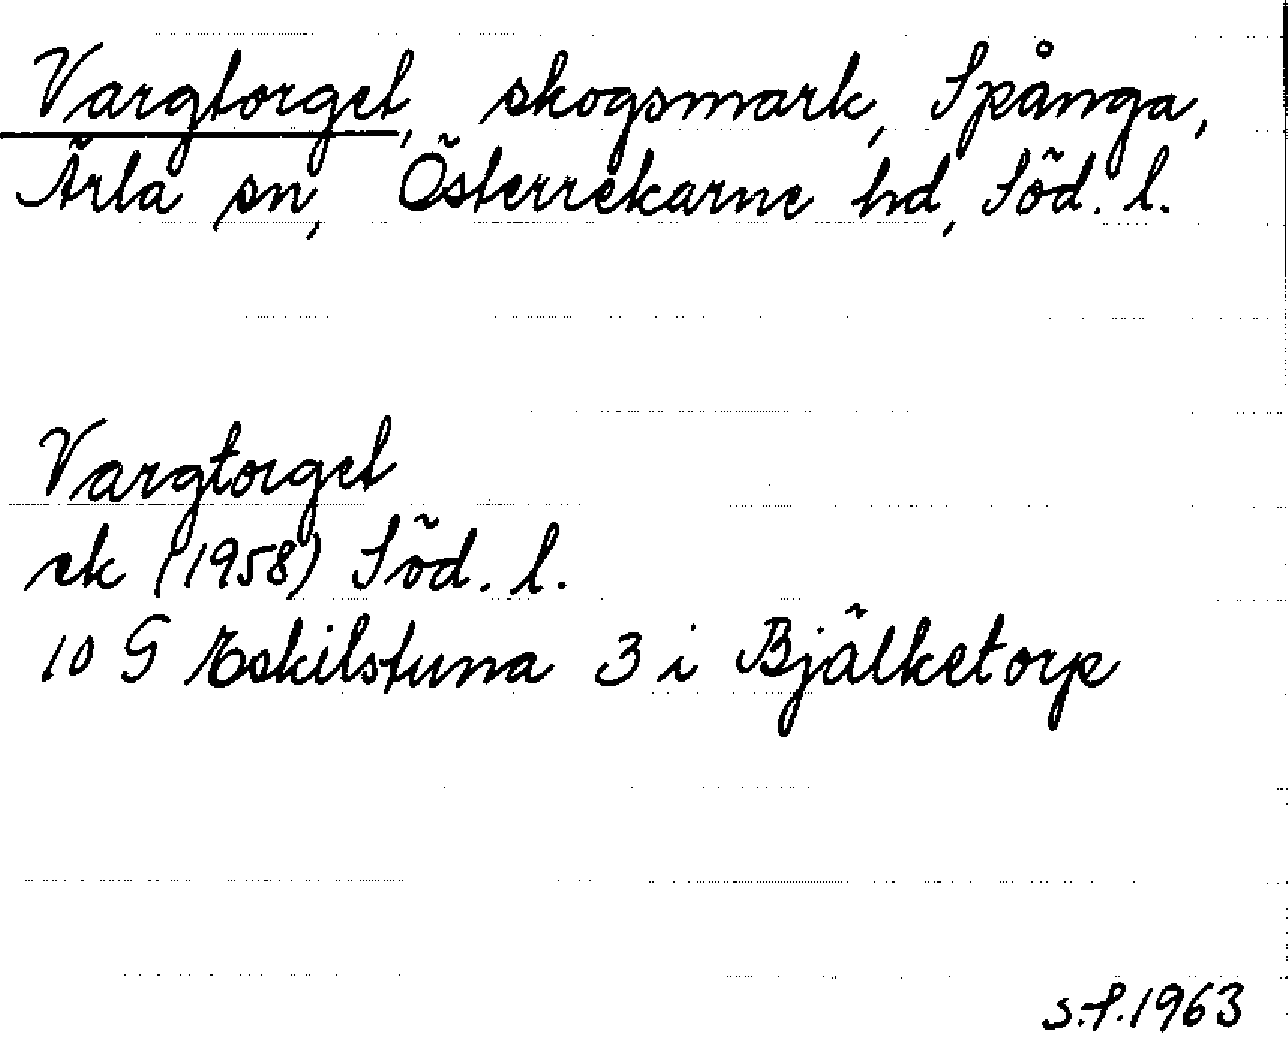 Vargtorget, skogsmark, Spånga,
Ärla sn, Österrekarne hd, Söd. l.
Vargtorget
ek (1958) Söd. l.
10 G Eskilstuna 3 i Bjälketorp
S.f.1963